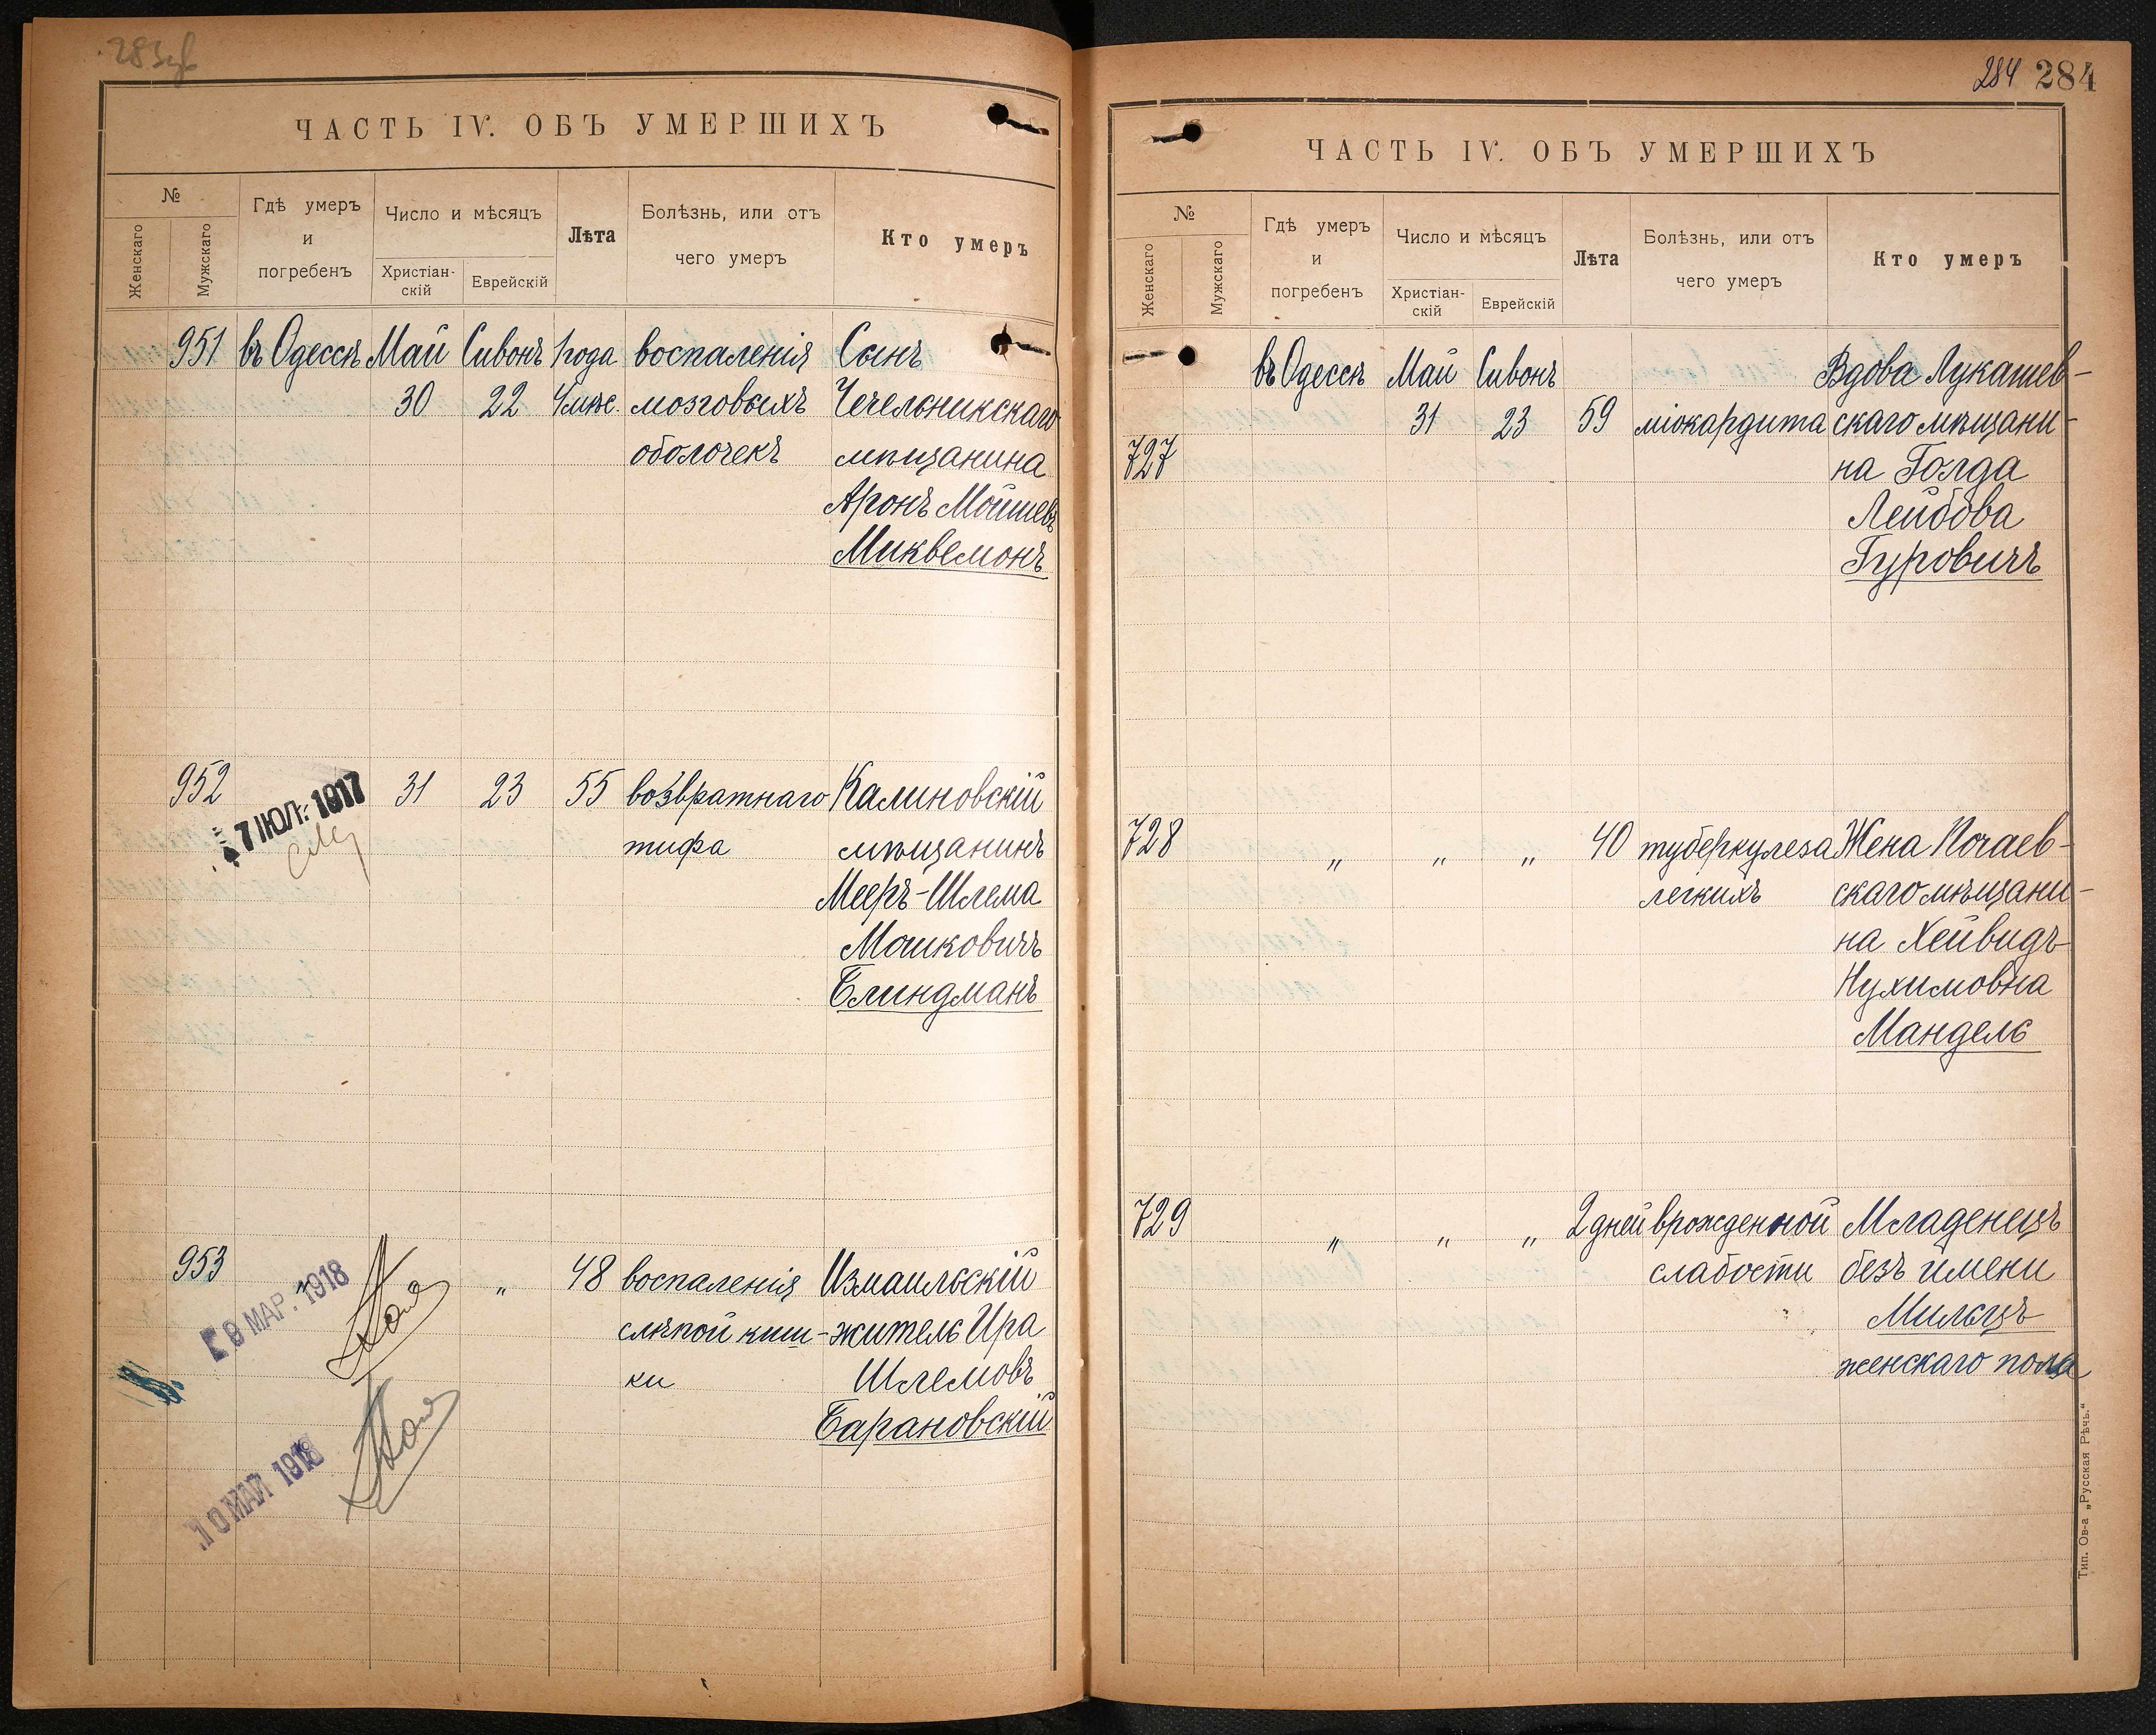 283об
ЧАСТЬ IV. ОБЪ УМЕРШИХЪ
№
Женскаго
Мужскаго
Гдѣ умеръ
и
погребенъ
Число и мѣсяцъ
Христіан-
скій
Еврейскій
Лѣта
Болѣзнь, или отъ
чего умеръ
Кто умеръ
951 въ Одессѣ Май Сивонъ 1 года воспаленія Сынъ
30 22 4 мѣс. мозговыхъ Чечельникскаго
оболочекъ мѣщанина
Аронъ Мойшевъ
Миквемонъ
952 31 23 55 возвратнаго Калиновскій
7 ІЮЛ. 1917
тифа мѣщанинъ
Мееръ-Шлема
Мошковичъ
Блиндманъ
953 „ 48 воспаленія Измаильскій
9 МАР. 1918
слѣпой киш- житель Ира
ки Шлемовъ
Барановскій
10 МАЙ 1918
284 284
ЧАСТЬ IV. ОБЪ УМЕРШИХЪ
№
Женскаго
Мужскаго
Гдѣ умеръ
и
погребенъ
Число и мѣсяцъ
Христіан-
скій
Еврейскій
Лѣта
Болѣзнь, или отъ
чего умеръ
Кто умеръ
въ Одессѣ Май Сивонъ Вдова Лукашев-
31 23 59 міокардита скаго мѣщани-
727 на Голда
Лейбова
Гуровичъ
728 „ „ „ 40 туберкулеза Жена Почаев-
легкихъ скаго мѣщани-
на Хейвидъ
Нухимовна
Мандель
729 „ „ „ 2 дней врожденной Младенецъ
слабости безъ имени
Мильцъ
женскаго пола
Тип. Ов-а „Русская Рѣчь.“